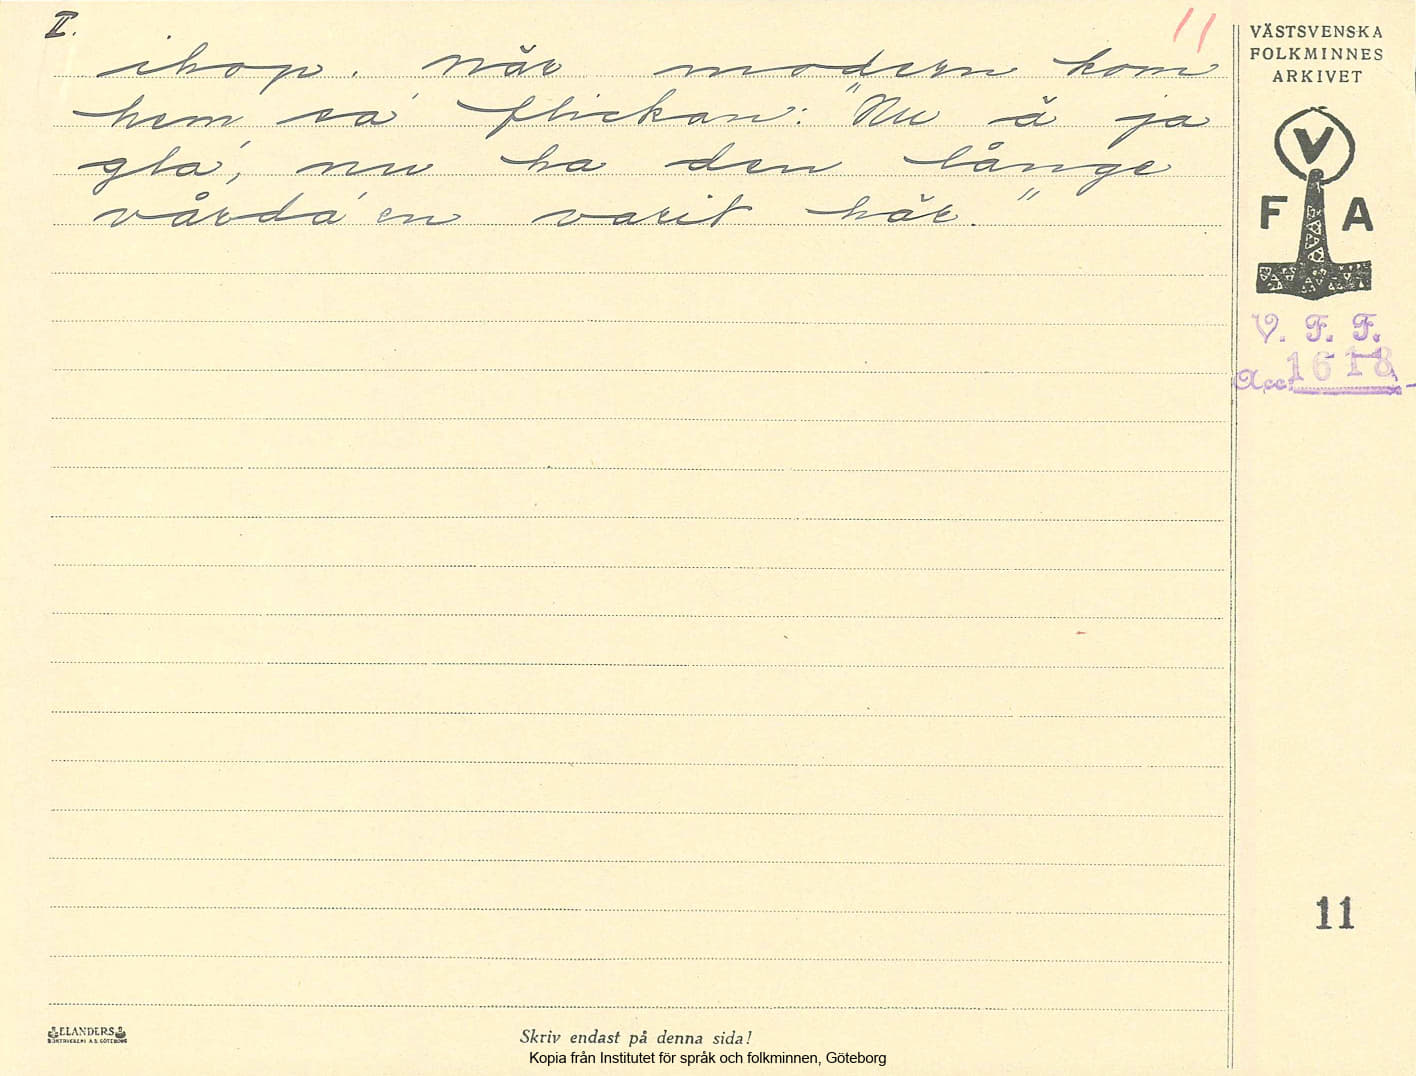 II.
11
ihop. När modern kom
hem sa' flickan: "Nu ä ja
gla', nu ha den långe
vårda'en varit här."
VÄSTSVENSKA
FOLKMINNES
ARKIVET
V
F A
V. F. F.
Acc. 1618
11
ELANDERS
BOKTRYCKERI A.B. GÖTEBORG
Skriv endast på denna sida!
Kopia från Institutet för språk och folkminnen, Göteborg